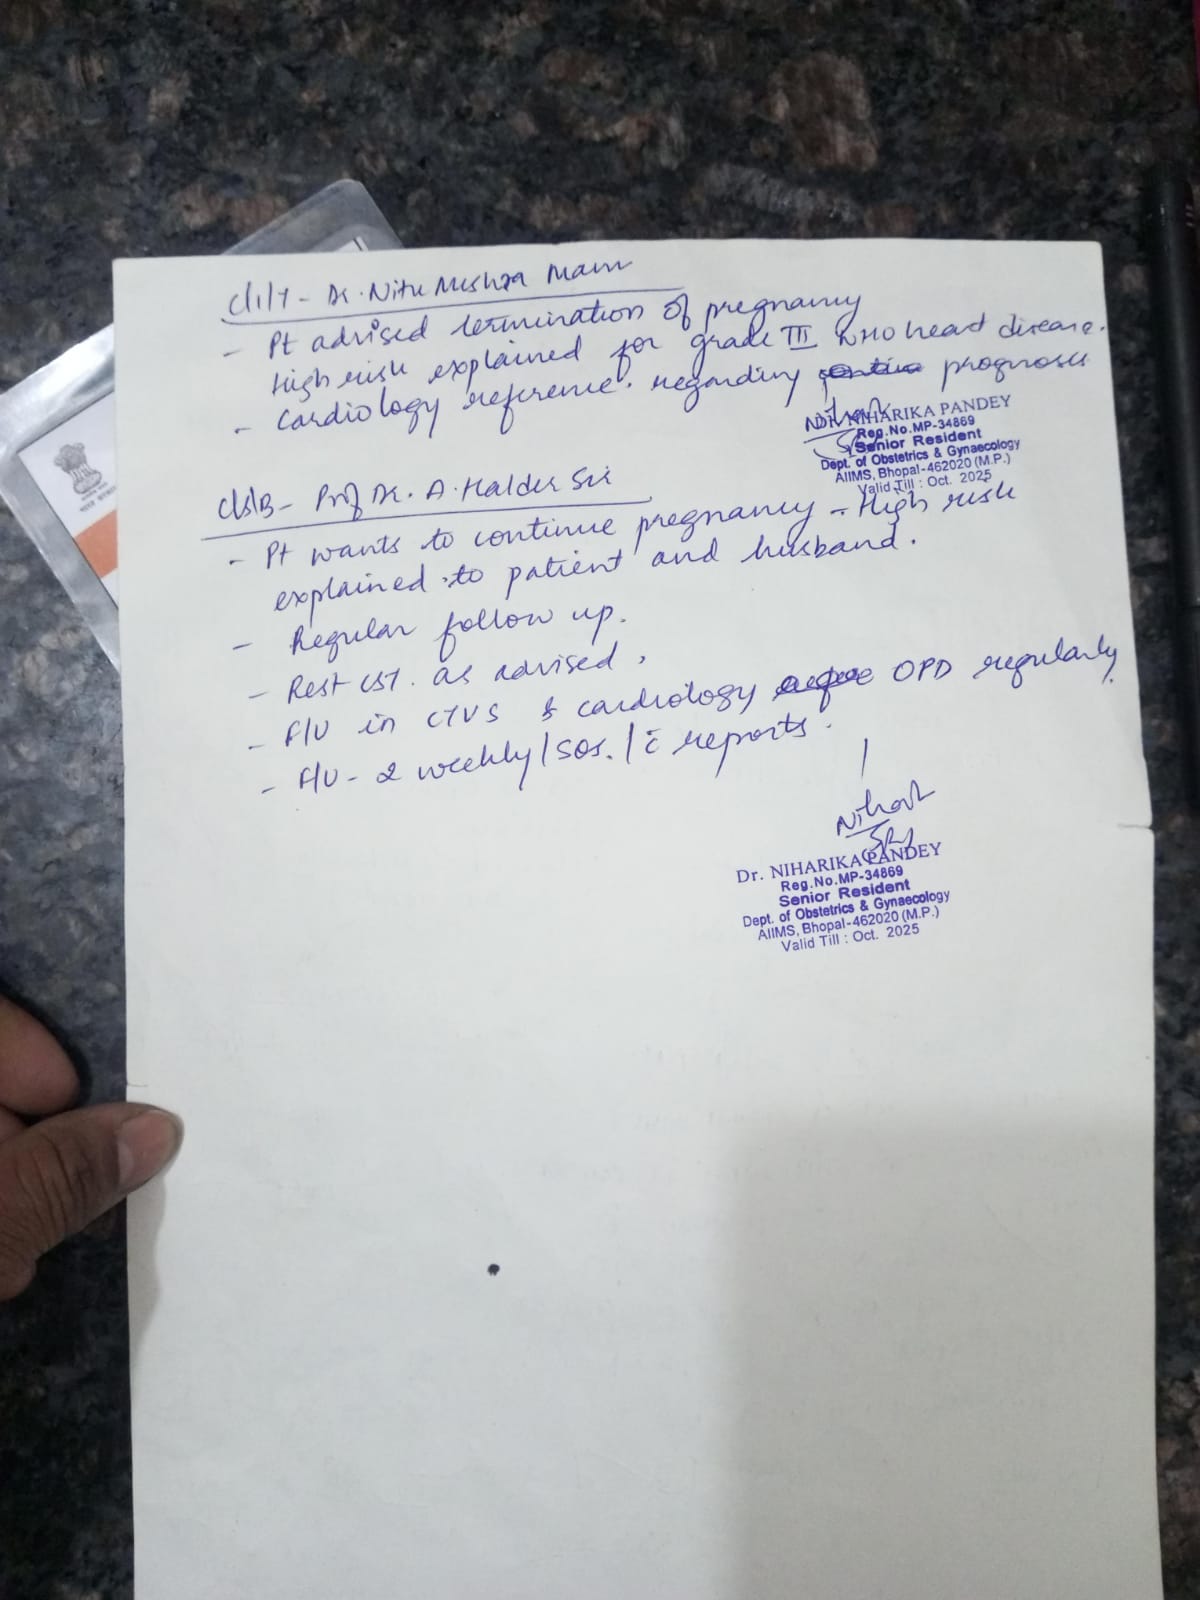 c/i/t - Dr. Nitu Mishra Mam
- Pt advised termination of pregnancy
High risk explained for grade III WHO heart disease.
- Cardiology reference. regarding prognosis
Dr. NIHARIKA PANDEY
Reg.No.MP-34869
Senior Resident
Dept. of Obstetrics & Gynaecology
AIIMS, Bhopal-462020 (M.P.)
Valid Till : Oct. 2025
c/s/B - Prof Dr. A. Halder Sir
- Pt wants to continue pregnancy - High risk
explained to patient and husband.
- Regular follow up.
- Rest CST. as advised.
- F/U in CTVS & cardiology OPD regularly.
- F/U - 2 weekly/SOS./c̄ reports.
Nihar
SR
Dr. NIHARIKA PANDEY
Reg.No.MP-34869
Senior Resident
Dept. of Obstetrics & Gynaecology
AIIMS, Bhopal-462020 (M.P.)
Valid Till : Oct. 2025